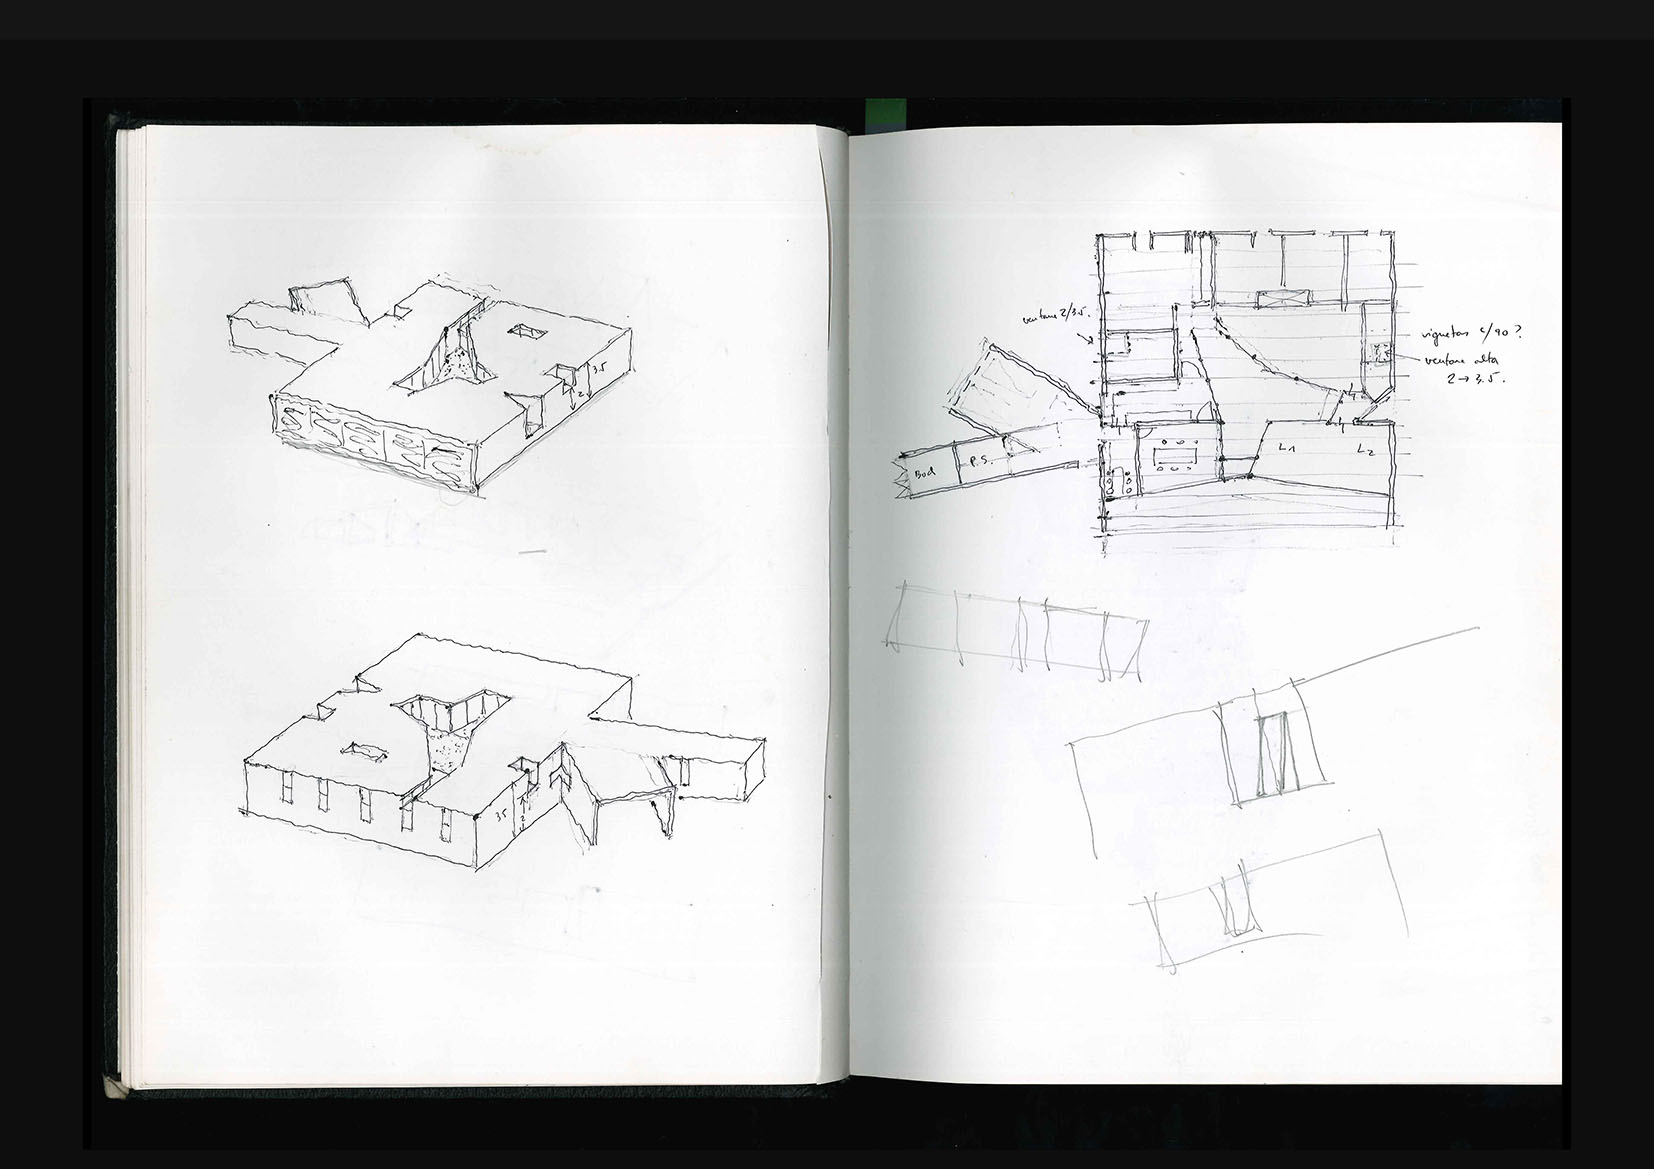 3.5
2
3.5
2
ventana 2/3.5.
viguetas c/90?
ventana alta
2→3.5.
Bod
P.S.
L1
L2